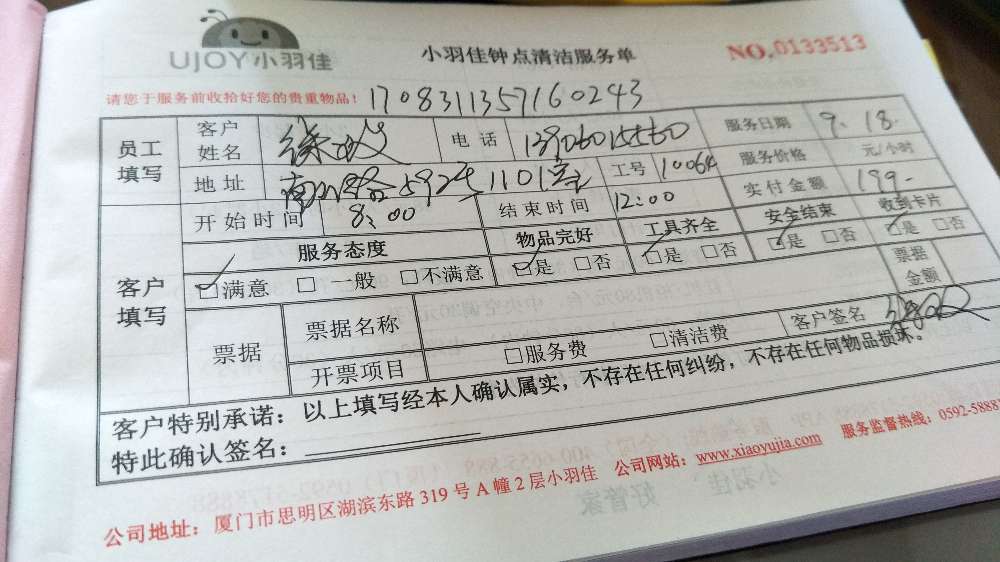 UJOY小羽佳
小羽佳钟点清洁服务单
NO.0133513
请您于服务前收拾好您的贵重物品！ 1708311357160243
员工填写 客户姓名 徐 电话 服务日期 9.18.
地址 1101室 工号 10064 服务价格 元/小时
开始时间 8:00 结束时间 12:00 实付金额 199-
客户填写 服务态度 物品完好 工具齐全 安全结束 收到卡片
□满意 □一般 □不满意 □是 □否 □是 □否 □是 □否 □是 □否
票据 票据名称 票据金额
开票项目 □服务费 □清洁费 客户签名
客户特别承诺：以上填写经本人确认属实，不存在任何纠纷，不存在任何物品损坏。
特此确认签名：
公司地址：厦门市思明区湖滨东路319号A幢2层小羽佳 公司网站：www.xiaoyujia.com 服务监督热线：0592-5888